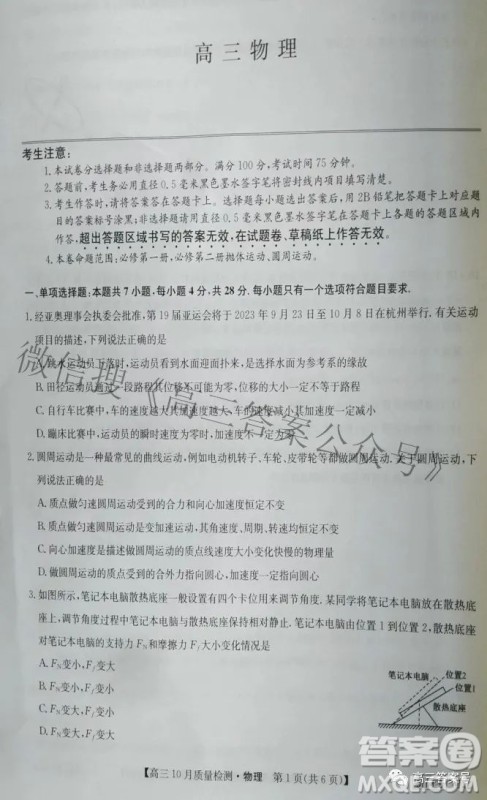 高三物理
考生注意:
1.本试卷分选择题和非选择题两部分。满分100分,考试时间75分钟。
2.答题前,考生务必用直径0.5毫米黑色墨水签字笔将密封线内项目填写清楚。
3.考生作答时,请将答案答在答题卡上。选择题每小题选出答案后,用2B铅笔把答题卡上对应题
目的答案标号涂黑;非选择题请用直径0.5毫米黑色墨水签字笔在答题卡上各题的答题区域内
作答,超出答题区域书写的答案无效,在试题卷、草稿纸上作答无效。
4.本卷命题范围:必修第一册,必修第二册抛体运动、圆周运动。
一、单项选择题:本题共7小题,每小题4分,共28分.每小题只有一个选项符合题目要求.
1.经亚奥理事会执委会批准,第19届亚运会将于2023年9月23日至10月8日在杭州举行.有关运动
项目的描述,下列说法正确的是
A.跳水运动员下落中,感觉水面迎面扑来,是选择水面为参考系的缘故
B.田径运动员通过一段路程其位移不可能为零,位移的大小一定不等于路程
C.自行车比赛中,运动员的速度越大其加速度越大,加速度减小速度一定减小
D.蹦床比赛中,运动员的瞬时速度为零时,加速度一定为零
2.圆周运动是一种最常见的曲线运动,例如电动机转子、车轮、皮带轮等都做圆周运动.关于圆周运动,下
列说法正确的是
A.质点做匀速圆周运动受到的合力和向心加速度恒定不变
B.质点做匀速圆周运动是变加速运动,其角速度恒定不变
C.向心加速度是描述做圆周运动的质点线速度大小变化快慢的物理量
D.做圆周运动的质点所受的合外力指向圆心,加速度一定指向圆心
3.如图所示,笔记本电脑散热底座一般设置有四个卡位用来调节角度.某同学将笔记本电脑放在散热底
座上,调节角度过程中笔记本电脑与散热底座保持相对静止.笔记本电脑由位置1到位置2,散热底座对
电脑的支持力FN和摩擦力Ff大小变化情况是
A.FN变小,Ff变大
B.FN变小,Ff变小
C.FN变大,Ff变小
D.FN变大,Ff变大
笔记本电脑
位置2
位置1
散热底座
【高三10月质量检测·物理 第1页(共6页)】
微信搜《高三答案公众号》
答案圈
MXQE.COM
高三答案号